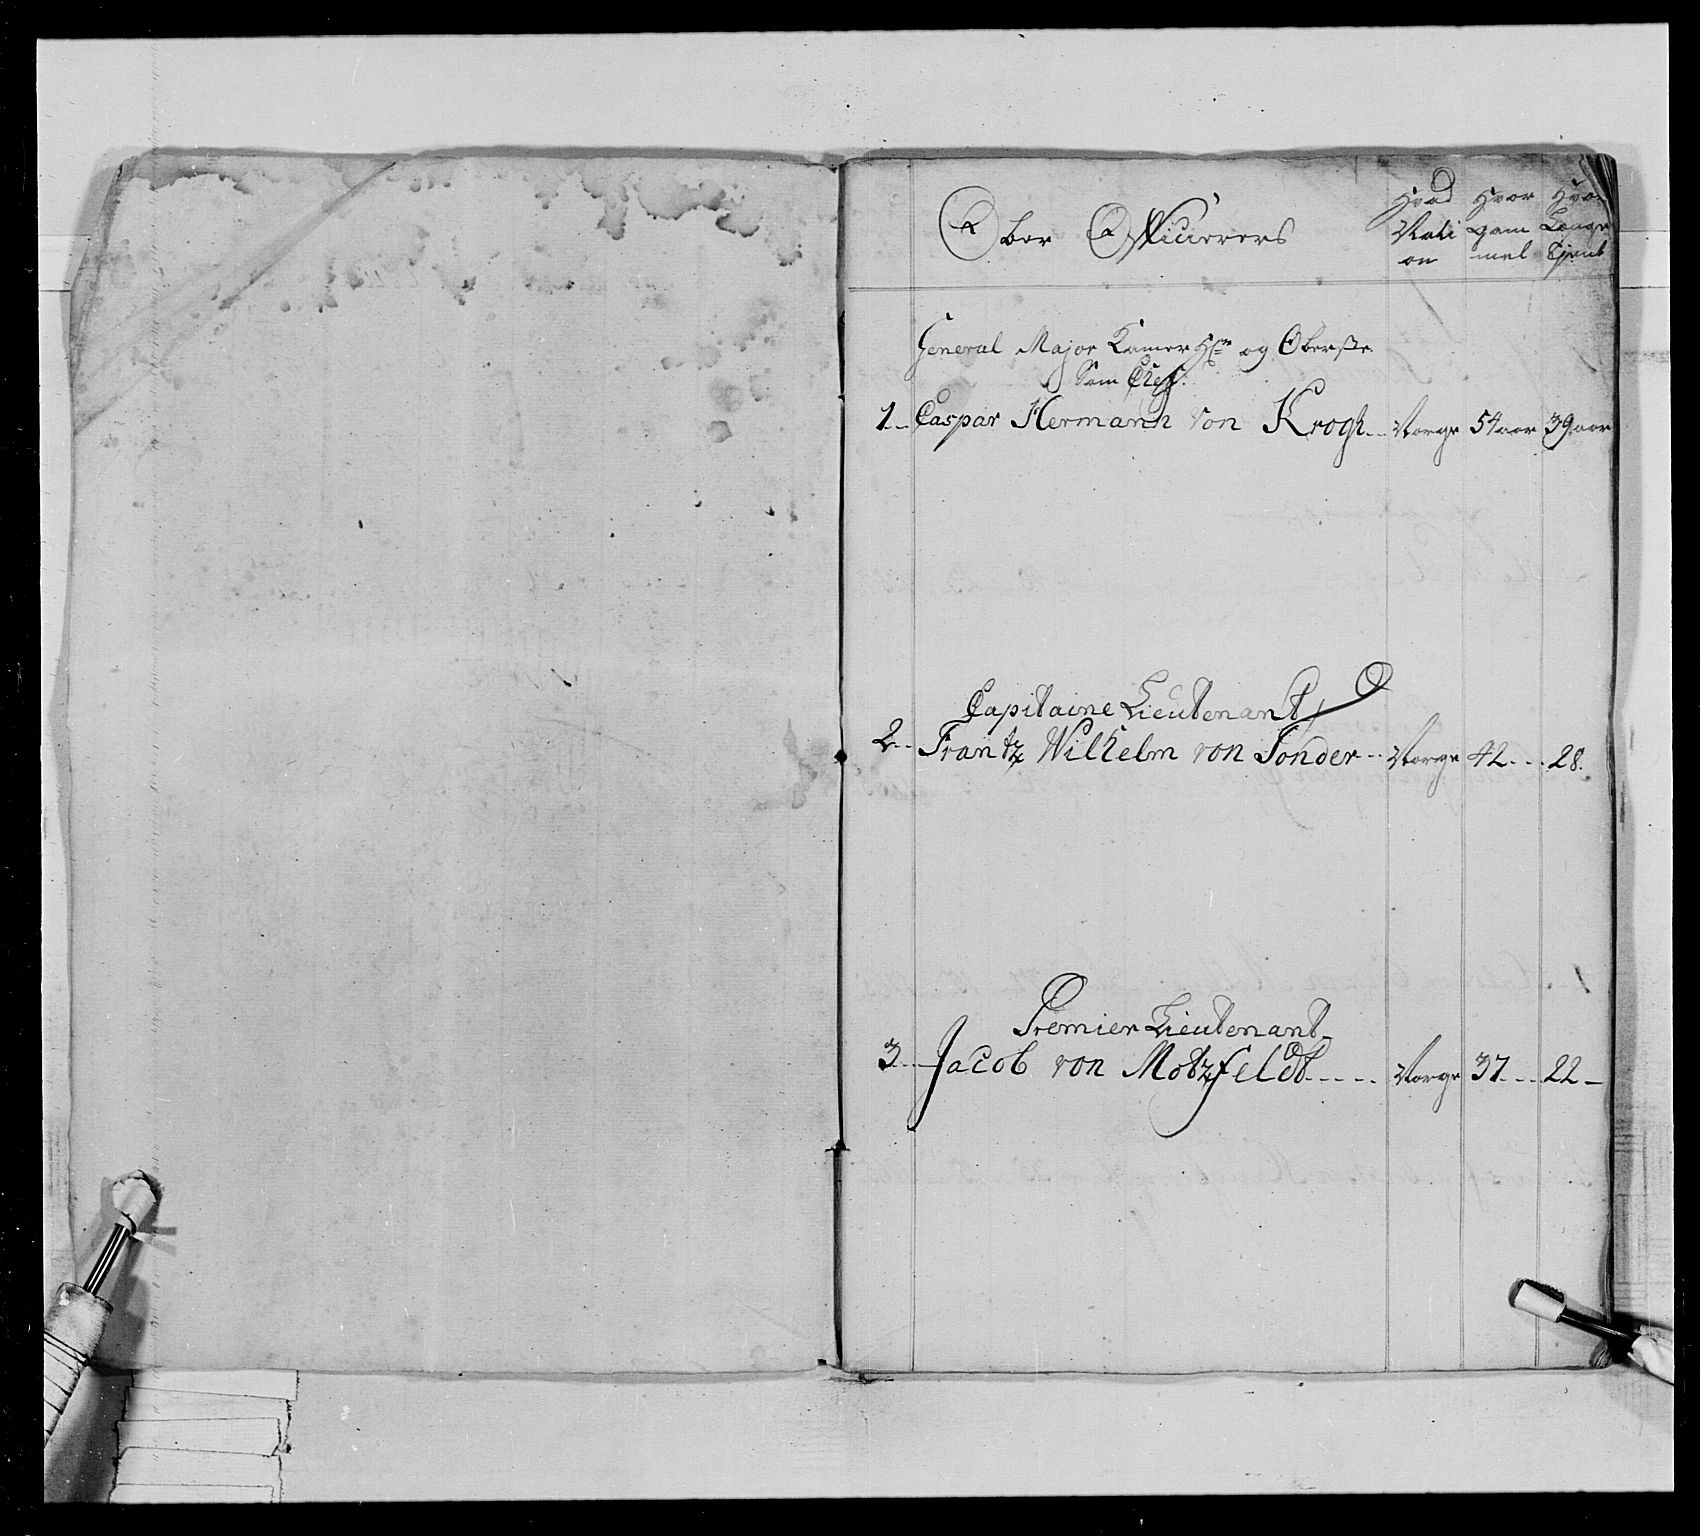 Ober Officierers
Hvad Nati on
Hvor gam mel
Hvor Længe Tjent
General Major Kamer Hrr og Oberste
Som Chef.
1 Caspar Hermann von Krogh Norge 54 aar 39 aar
Capitaine Lieutenant
2 Frantz Wilhelm von Tonder Norge 42 28.
Premier Lieutenant
3 Jacob von Motzfeldt Norge 37 22